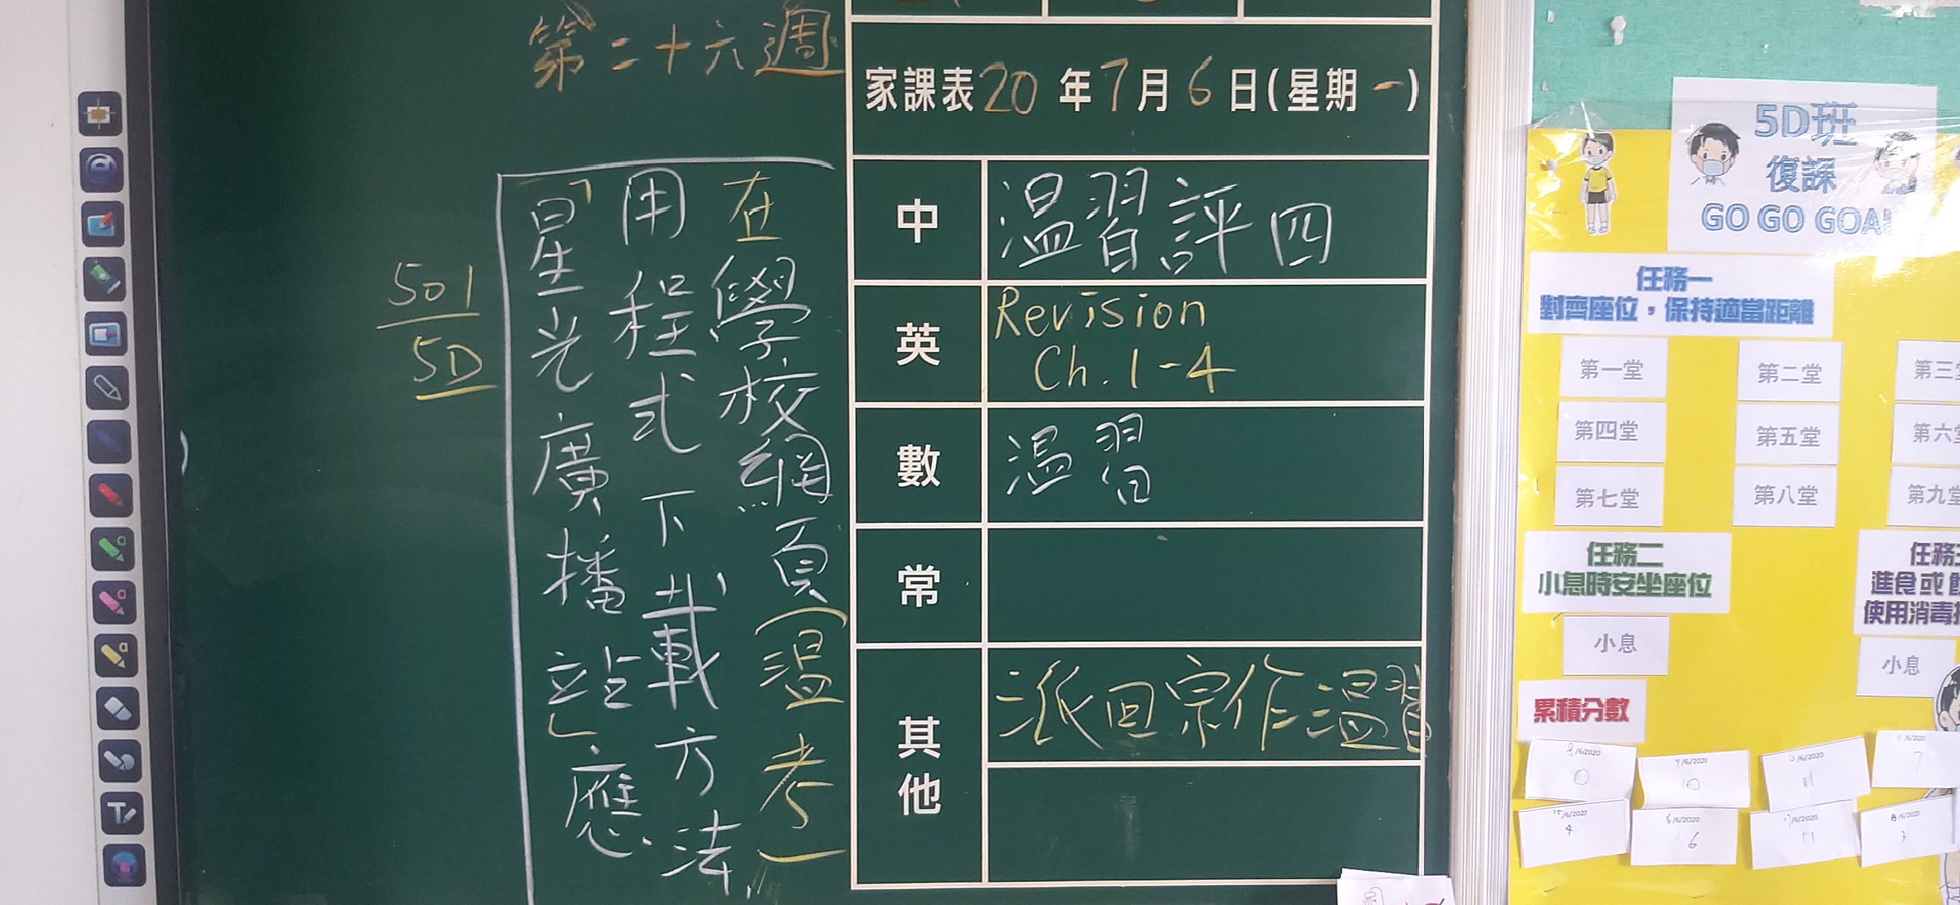 第二十六週
家課表20年7月6日(星期一)
中
溫習評四
英
Revision
Ch. 1-4
數
溫習
常
其他
派回宗作溫習
501
5D
在學校網頁(溫考)
用程式下載方法
「星光廣播站」應
5D班
復課
GO GO GOAL
任務一
對齊座位，保持適當距離
第一堂
第二堂
第三
第四堂
第五堂
第六堂
第七堂
第八堂
第九堂
任務二
小息時安坐座位
任務三
進食或飲
使用消毒
小息
小息
累積分數
8/6/2020
0
9/6/2020
10
10/6/2020
11
7
15/6/2020
4
6